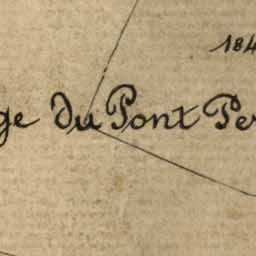 184
ge du Pont Per